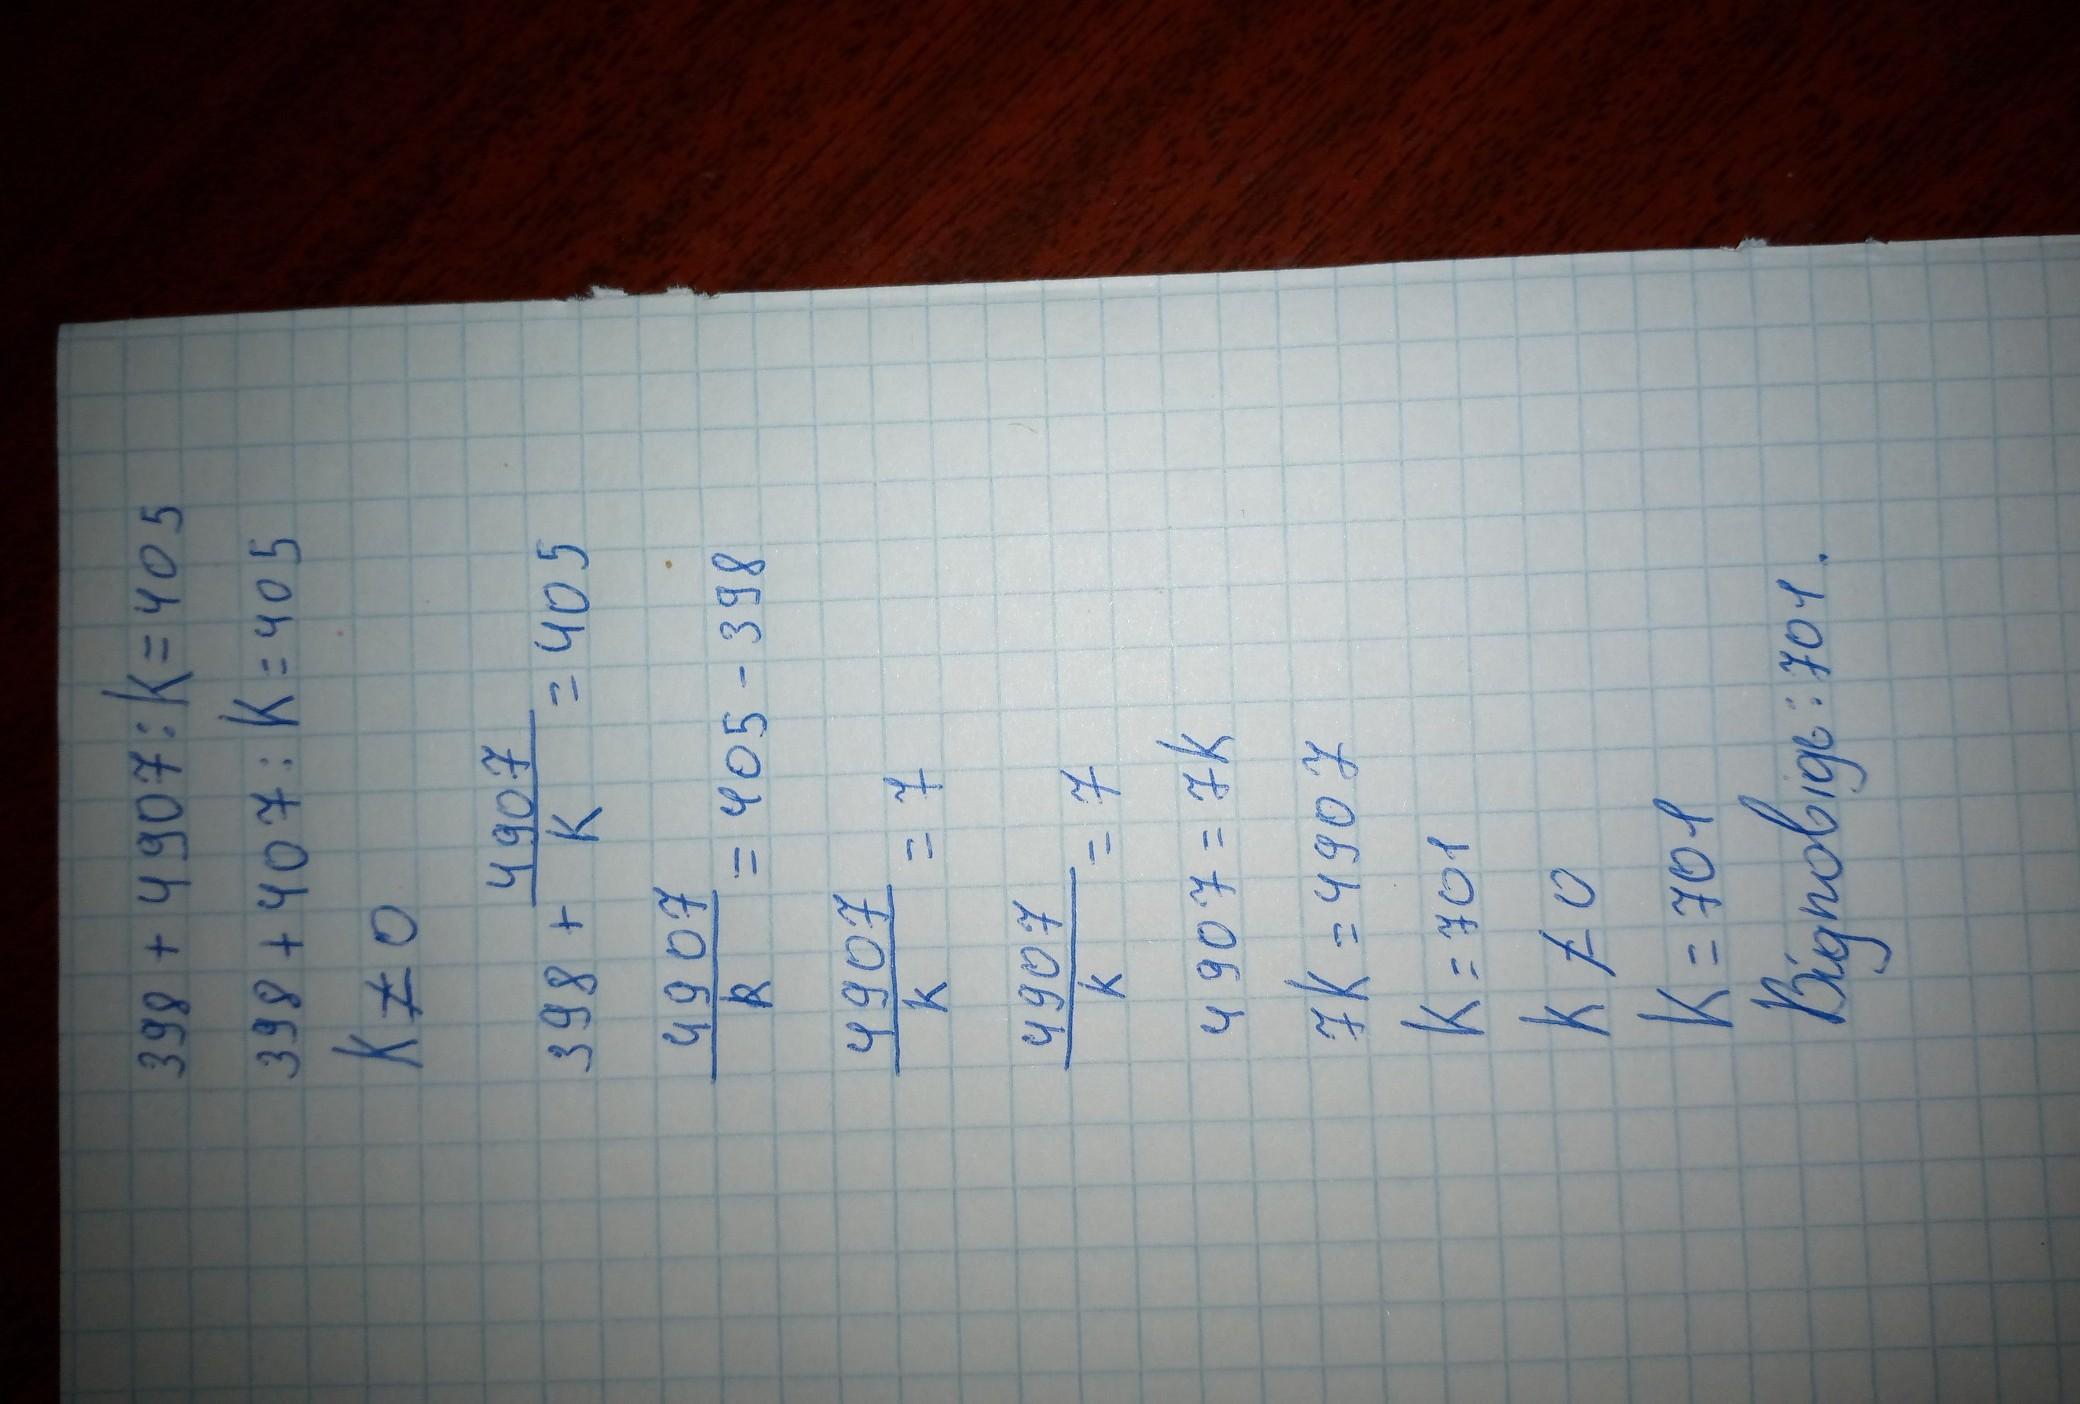 398 + 4907 : K = 405
398 + 407 : K = 405
K ≠ 0
398 + 4907/K = 405
4907/K = 405 - 398
4907/K = 7
4907/K = 7
4907 = 7K
7K = 4907
K = 701
K ≠ 0
K = 701
Відповідь: : 701.